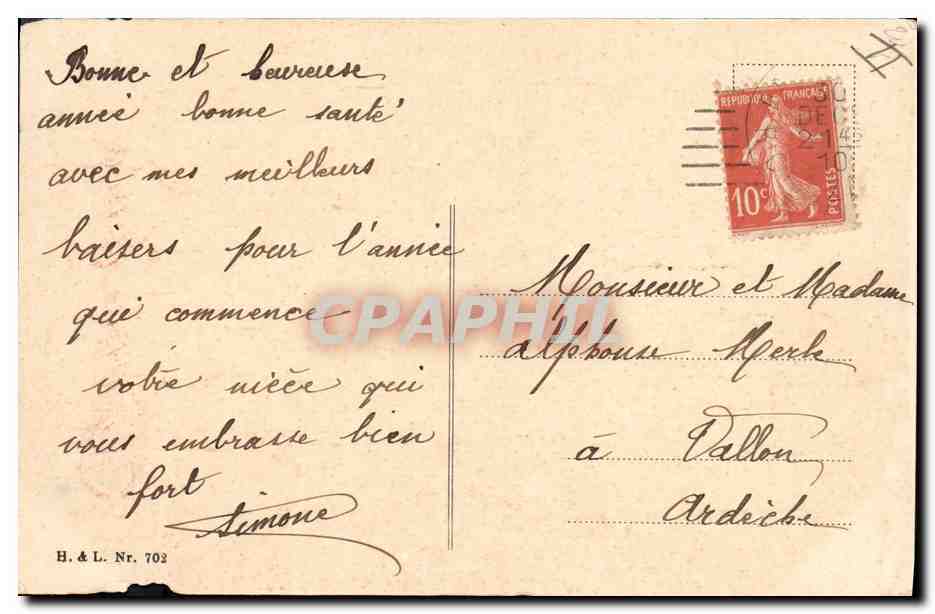 Bonne et heureuse
année bonne santé
avec mes meilleurs
baisers pour l'année
qui commence
votre nièce qui
vous embrasse bien
fort
Simone
H. & L. Nr. 702
REPUBLIQUE FRANÇAISE
10c
POSTES
DE
2-14
10
Monsieur et Madame
Alphonse Merle
à Vallon
Ardèche
CPAPHIL